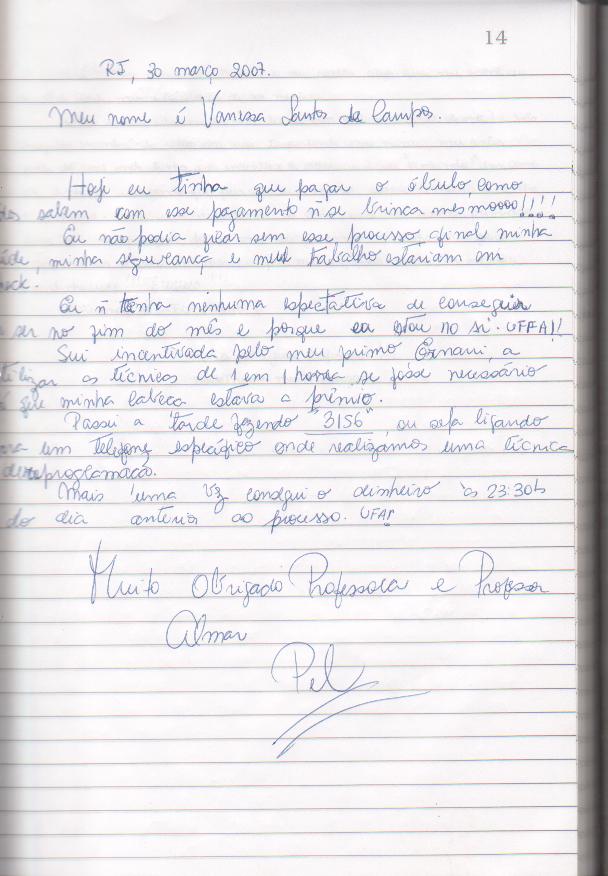 14
RJ, 30 março 2007.
Meu nome é Vanessa Santos de Campos.
Hoje eu tinha que pagar o óbulo, como
sabam com esse pagamento ñ se brinca mesmoooo!!!!
Eu não podia ficar sem esse processo, afinal minha
minha segurança e meu trabalho estariam em
eck.
Eu ñ tinha nenhuma espectativa de conseguir
ser no fim do mês e porque eu estou no si. UFFA!!
Sui incentivada pelo meu primo Ernani, a
tilizar as técnicas de 1 em 1 hora, se fosse necessário
que minha cabeça estava a prêmio.
Passei a tarde fazendo "3156", ou seja ligando
ra um telefone específico onde realizamos uma técnica
de reprogramação.
Mais uma vz consegui o dinheiro às 23:30h
do dia anterior ao processo. UFA!
Muito Obrigado Professora e Professor
Almar